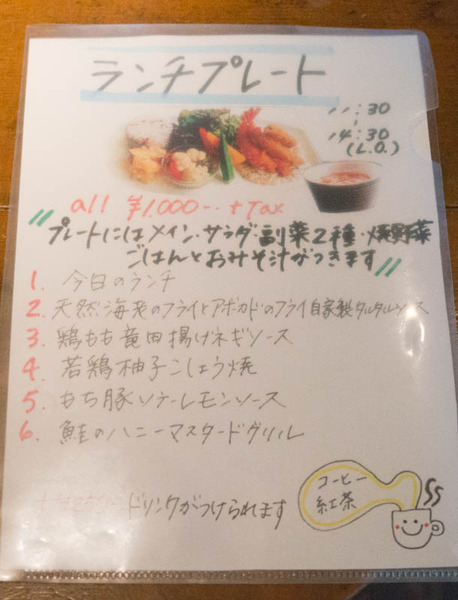 ランチプレート
11:30
|
14:30
(L.O.)
all ¥1,000-- +Tax
〃プレートにはメイン・サラダ・副菜2種・焼野菜
ごはんとおみそ汁がつきます〃
1. 今日のランチ
2. 天然海老のフライとアボカドのフライ自家製タルタルソース
3. 鶏もも竜田揚げネギソース
4. 若鶏柚子こしょう焼
5. もち豚ソテーレモンソース
6. 鮭のハニーマスタードグリル
ドリンクがつけられます
コーヒー
紅茶